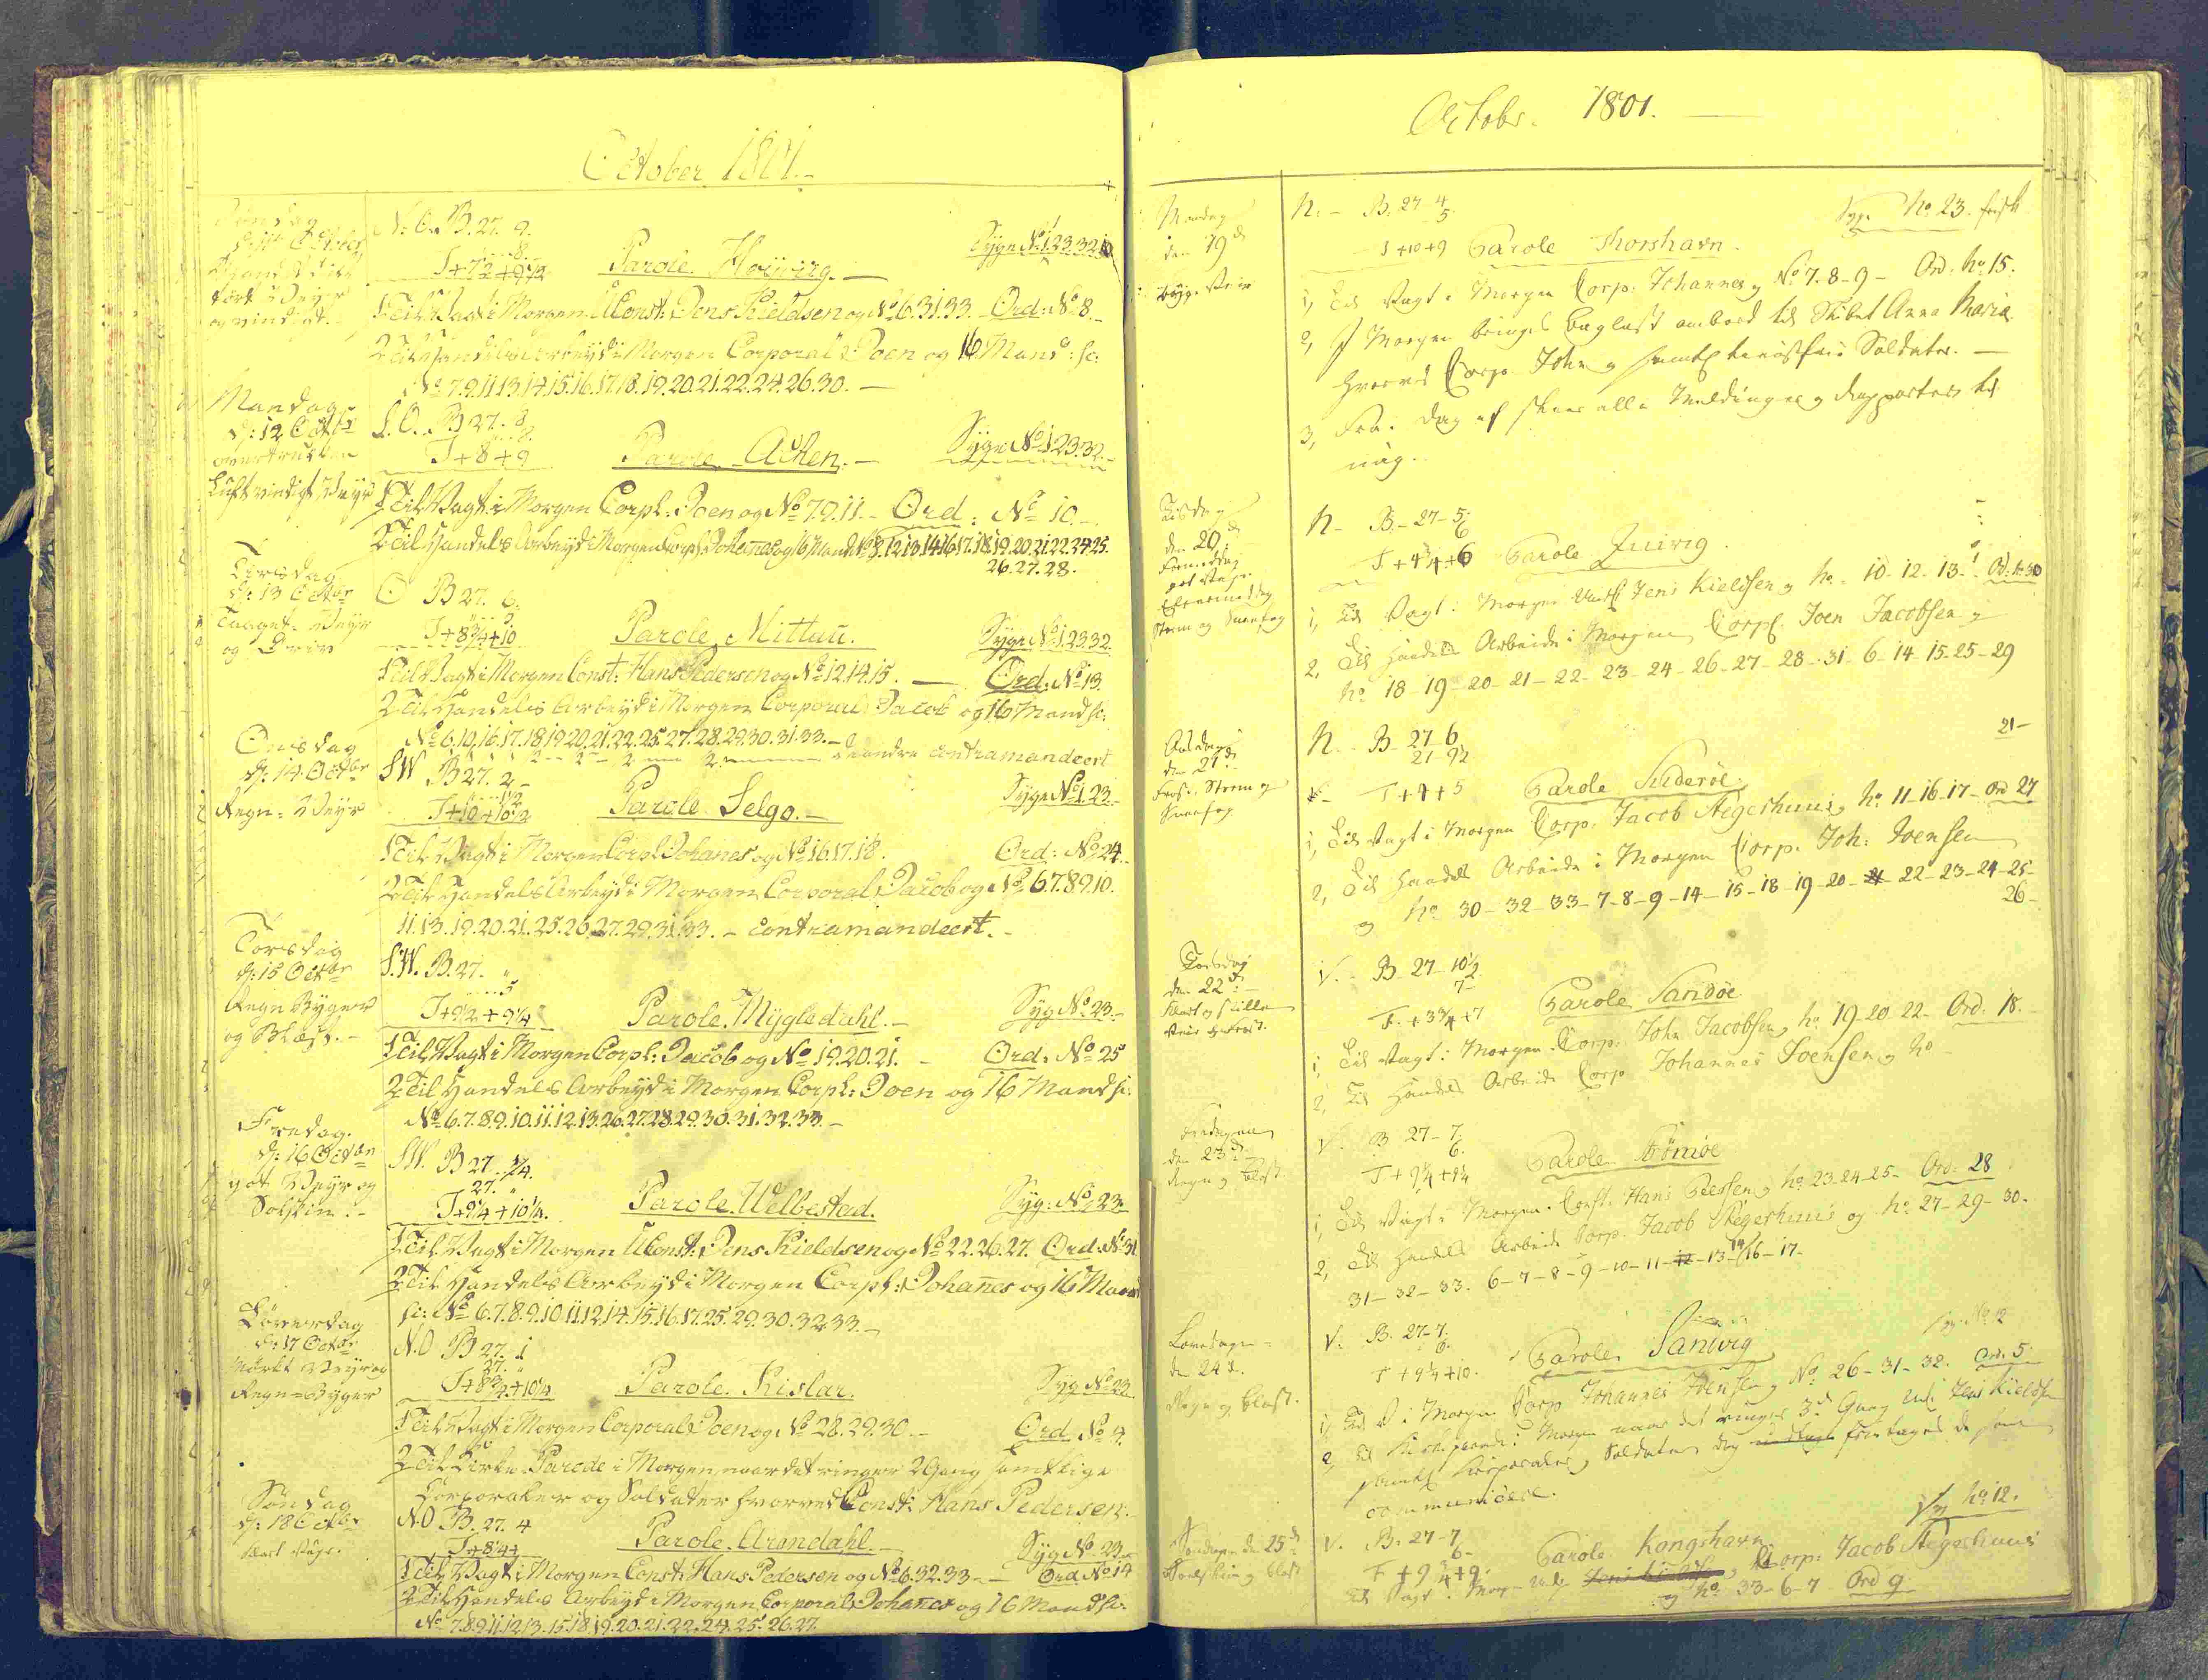 October 1801.
Søndag
d: 11te October
N. O. B. 27. 9.
8.
Syge No 1.23.32.
T+7½+9½ Parole. Hoyvig.
1 Til Vagt i Morgen UConst: Jens Kieldsen og No 6.31.33. Ord: No 8.
2 Til Handels Arbeyd i Morgen Corporal Joen og 16 Mand: sc:
No 7.9.11.13.14.15.16.17.18.19.20.21.22.24.26.30.
Mandag
d: 12 Octbr
overtrukken
Luft vindigt Veyr
S. O. B 27. 8
8.
T+8+9 Parole Achen. Syge No 1.23.32.
1 Til Vagt i Morgen Corpl: Joen og No 7.9.11. Ord: No 10.
2 Til Handels Arbeyd i Morgen Corpl: Johanes og 16 Mand No 8.12.13.14.16.17.18.19.20.21.22.24.25.
26.27.28.
Tirsdag
d: 13 Octbr
Taaget Veyr
og
O B 27. 6.
5.
T+8¾+10 Parole, Mittau. Syge No 1.23.32.
1 Til Vagt i Morgen Const: Hans Pedersen og No 12.14.15. Ord: No 13.
2 Til Handels Arbeyd i Morgen Corporal Jacob og 16 Mand sc:
No 6.10.16.17.18.19.20.21.22.25.27.28.29.30.31.33.
contramandeert
Onsdag
d: 14 Octbr
Regn-Veyr
SW B 27. 2
1½
T+10+10½ Parole. Selgo. Syge No 1.23.
1 Til Vagt i Morgen Corpl Johanes og No 16.17.18. Ord: No 24.
2 Til Handels Arbeyd i Morgen Corporal Jacob og No 6.7.8.9.10.
11.13.19.20.21.25.26.27.29.31.33. - contramandeert.
Torsdag
d: 15 Octbr
Regn Byger
og Blæst.
S.W. B. 27. "
5
T+9½+9¼ Parole. Mygledahl. Syg No 23.
1 Til Vagt i Morgen Corpl: Jacob og No 19.20.21. Ord: No 25
2 Til Handels Arbeyd i Morgen Corpl: Joen og 16 Mand sc:
No 6.7.8.9.10.11.12.13.26.27.28.29.30.31.32.33.
Fredag.
d: 16 Octbr
got Veyr og
Solskin.
SW. B 27 ¼.
27. "
T+9¼+10¼. Parole. Welbestad. Syg: No 23.
1 Til Vagt i Morgen UConst: Jens Kieldsen og No 22.26.27. Ord: No 31
2 Til Handels Arbeyd i Morgen Corpl: Johanes og 16 Mand
sc: No 6.7.8.9.10.11.12.14.15.16.17.25.29.30.32.33.
Løverdag
d: 17 Octbr
Mørkt Veyr og
Regn-Byger
N.O B 27. 1
27. "
T+8¾+10¼ Parole. Kislar. Syg No 23
1 Til Vagt i Morgen Corporal Joen og No 28.29.30. Ord No 9.
2 Til Kirke Parede i Morgen, naar det ringer 2 Gang samtlige
Corporaler og Soldater hvorved Const: Hans Pedersen.
Søndag
d: 18 Octbr
N.O B. 27. 4
T+8¼+ Parole. Arendahl. Syg No. 23
1 Til Vagt i Morgen Const: Hans Pedersen og No 6.32.33. Ord No 14
2 Til Handels Arbeyd i Morgen Corporal Johanes og 16 Mand sc:
No 7.8.9.11.12.13.15.18.19.20.21.22.24.25.26.27.
Octobr. 1801.
Mandag
den 19d
N. - B. 27 4
5.
Syg. No 23. frisk
T+10+9 Parole Thorshavn.
1, Til Vagt i Morgen Corp: Johannes og No 7-8-9- Ord. No 15.
2, I Morgen bringes Baglast ombord til Skibet Anna Maria
hvorved Corp. John og samtl tienestfrie Soldater.
3, Fra Dag af skeer alle Meldinger og Rapporter til
mig.
Tisdag
den 20d
Formiddag
got Veyr
Eftermiddag
Storm og Sneefog
N- B.-27-5
6
T+4¾+6 Parole Zuivig.
1, Til Vagt i Morgen UConst Jens Kieldsen og No. 10-12-13- Ord: No 30
2, Til Handels Arbeide i Morgen Corpl. Joen Jacobsen og
No 18-19-20-21-22-23-24-26-27-28-31-6-14-15-25-29
Onsdag
den 21d
Frost, Storm og
Sneefog
21-
N.- B-27-6
T+4+5 Parole Suderöe.
1, Til Vagt i Morgen Corp. Jacob Aegershuus, No 11-16-17- Ord 27
2, Til Handels Arbeide i Morgen Corp. Joh: Joensen
og No 30-32-33-7-8-9-14-15-18-19-20-21-22-23-24-25-
26-
Torsdag
den 22d
Klart og stille
Veir og Frost.
V.- B-27-10½
7-
T.+3¾+7 Parole Sandöe.
1, Til Vagt i Morgen Corp: John Jacobsen og No 19-20-22- Ord. 18.
2, Til Handels Arbeide Corp Johannes Joensen og No-
Fredagen
den 23d
Regn og Blæst.
V. B 27-7
6.
T+9¼+9¼ Parole Strömöe
1, Til Vagt i Morgen. Const. Hans Peersen og No 23-24-25- Ord: 28
2, Til Handels Arbeide Corp. Jacob Aegershuus og No 27-29-30.
31-32-33. 6-7-8-9-10-11-12-13-14-16-17-
Løverdagen
den 24d.
Regn og Blæst.
V. B. 27-7.
6.
Syg. No 12
T+9¾+10. Parole Sanvig
1, Til V i Morgen Corp Johannes Joensen og No. 26-31-32. Ord. 5
2, Til Kirkeparade i Morgen naar det ringer 3d Gang Uc Jens Kieldsen
samtl Corporaler og Soldater dog fritages de som
communicere.
Søndagen den 25d
og Blæst
Syg No 12.
V. B. 27-7
6-
T+9¾+9. Parole Kongshavn
Til Vagt i Morgen Jens Kieldsen Corp: Jacob Aegershuus
og No. 33-6-7 Ord 9